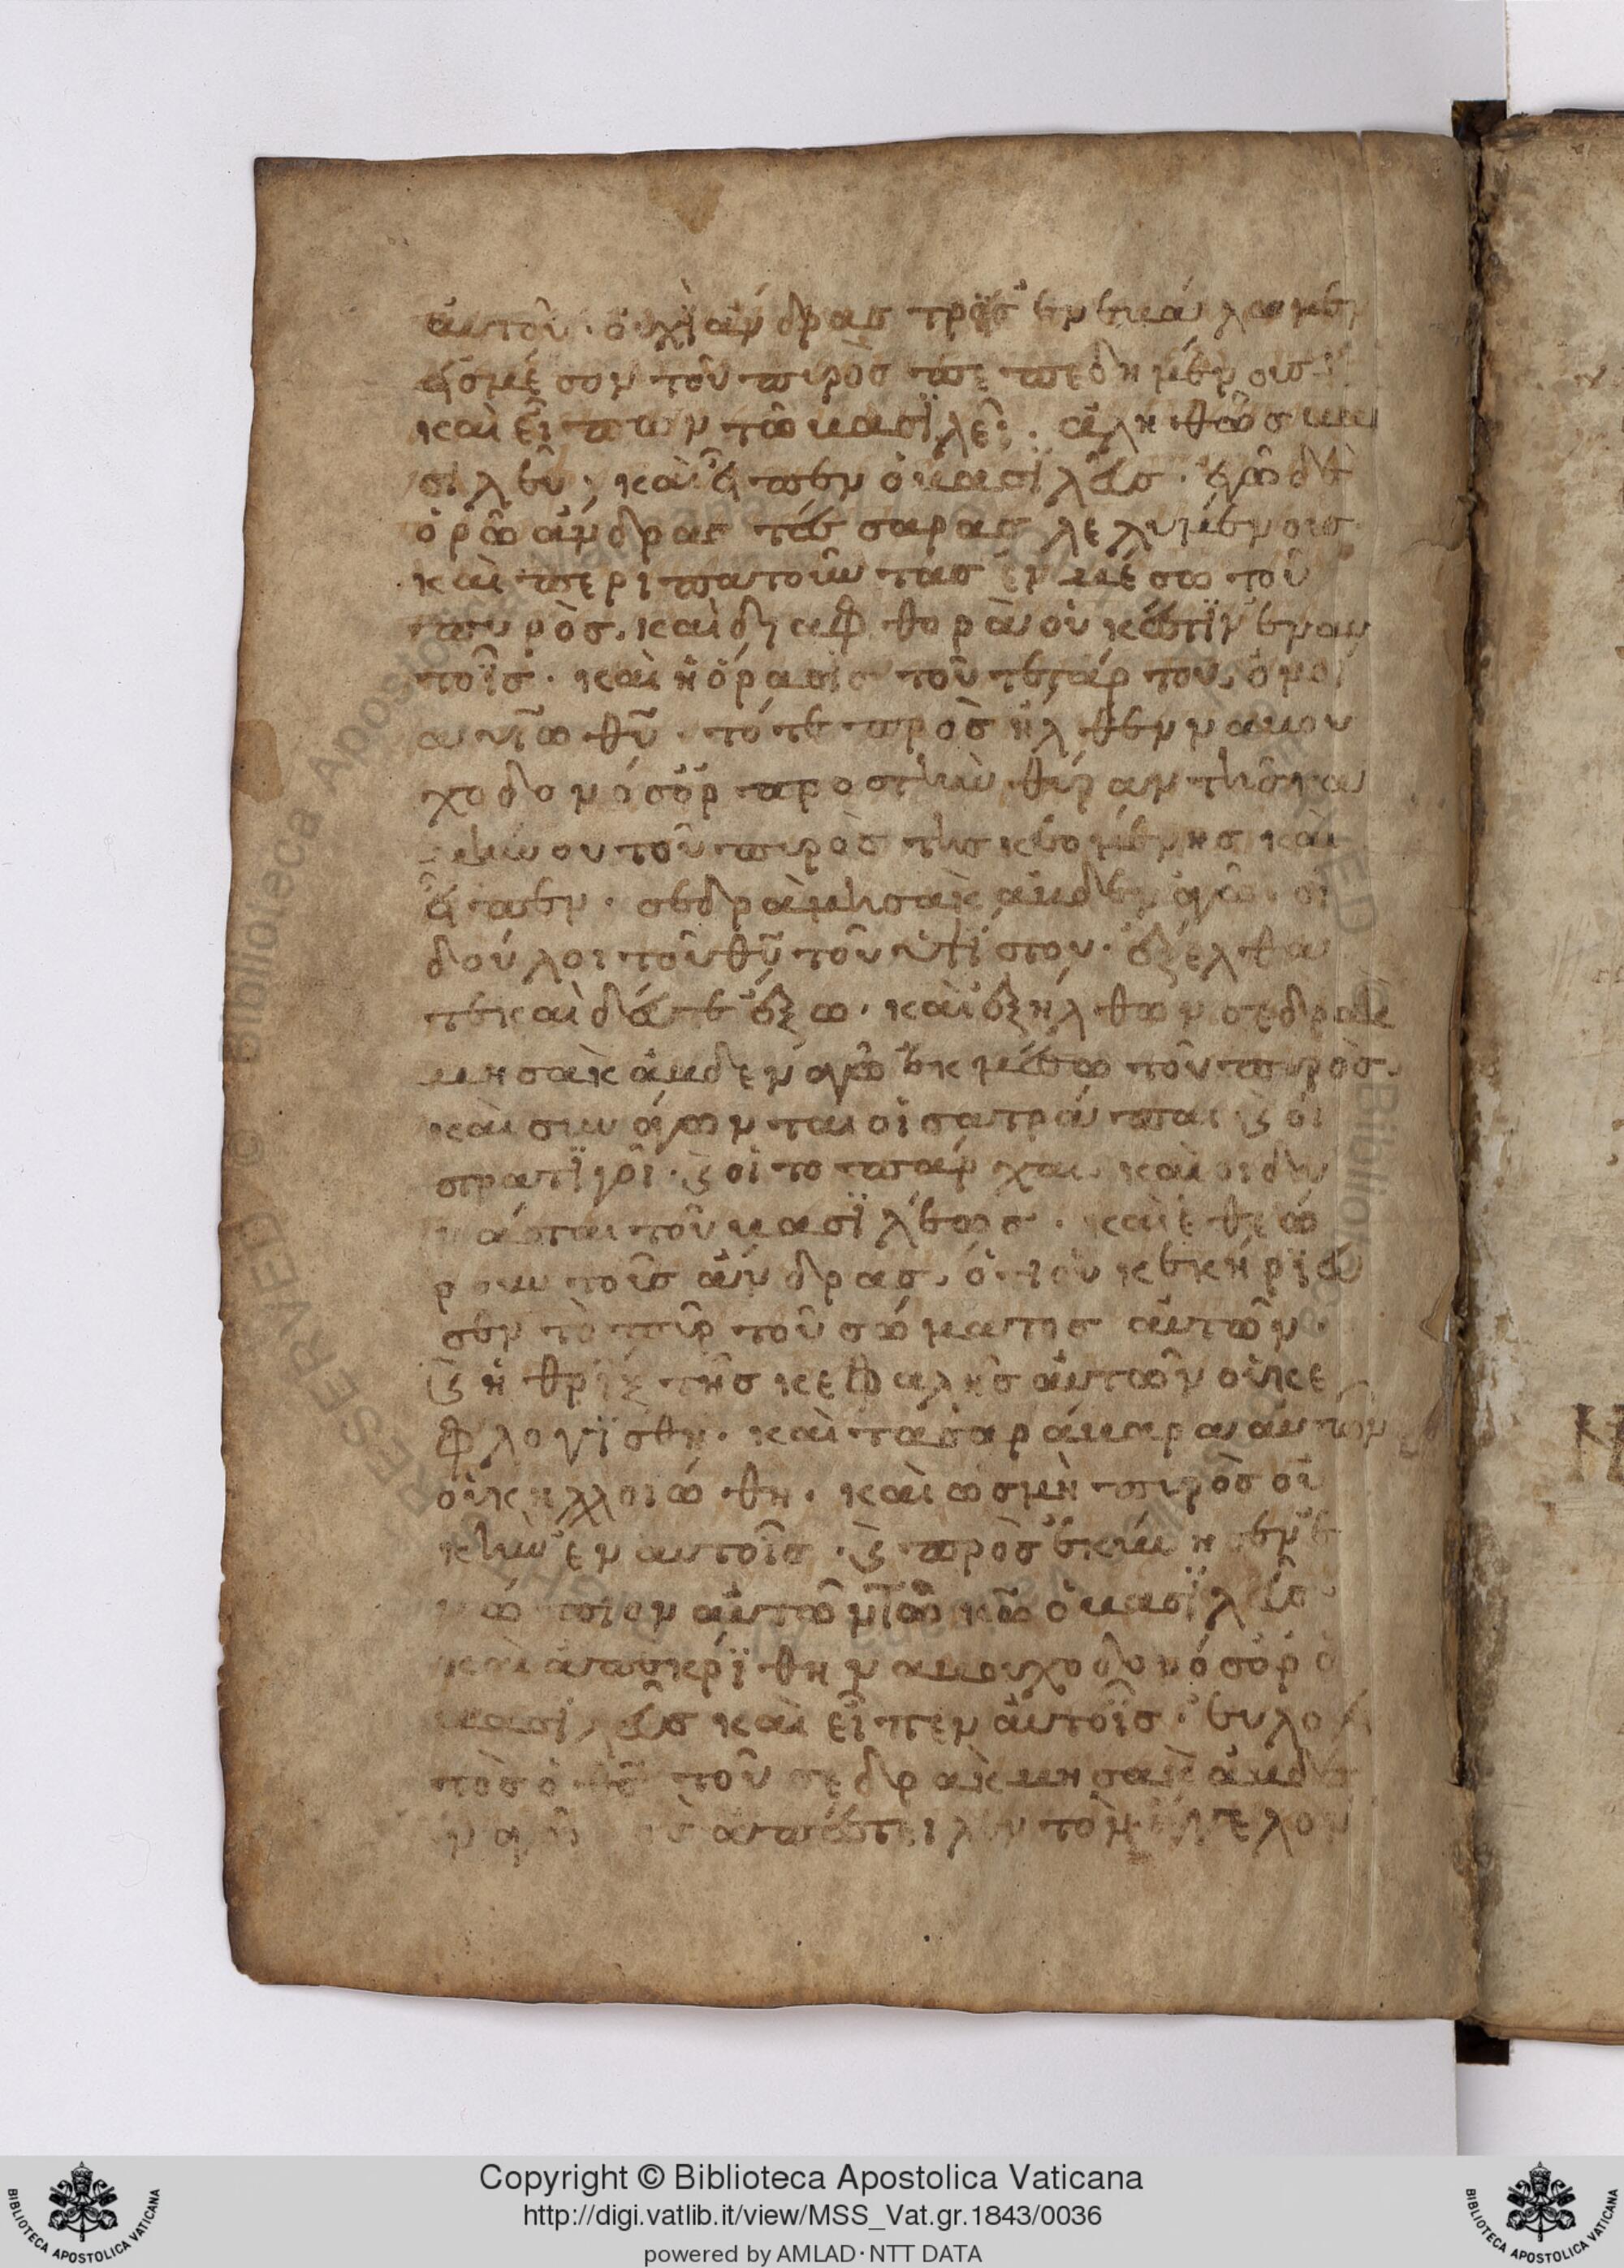 αυτοῦ· οὐχὶ ἄνδρας τρεῖς ἐνεβάλομεν
εἰς μέσον τοῦ πυρὸς πεπεδημένοις·
καὶ εἶπων τῶ βασϊλεῖ· ἀληθῶς βα
σιλεῦ· καὶ εἶπεν ὁ βασϊλεὺς· ἐγῶ δὲ
ὁρῶ ἄνδρας τέσσαρας λελυμένοις
καὶ περιπατοῦντας ἐν μέσω τοῦ
πυρὸς· καὶ διαφθορὰ οὐκ ἔστϊν ἐν αυ
τοῖς· καὶ ἡ ὅρασϊς τοῦ τετάρτου, ὁμοί
α υἱῶ θῦ· τότε προσῆλθεν ναβου
χοδονόσὸρ προς τὴν θύραν τῆς κα
μίνου τοῦ πυρὸς τῆς κεομένης καὶ
εἶπεν· σεδρὰχ μησὰκ ἀβδεναγῶ· οἱ
δούλοι τοῦ θῦ τοῦ ὑψίστου· ἐξέλθα
τε καὶ δεύτε ἔξω· καὶ ἐξήλθων σεδρακ
μησὰκ ἀβδεναγῶ ἐκ μέσω τοῦ πυρὸς·
καὶ συνάγωνται οἱ σατράπαι ϗ οἱ
στρατϊγοὶ· ϗ οἱ τοπάρχαι· καὶ οι δυ
νάσται τοῦ βασϊλέως· καὶ ἐθεώ
ρουν τοῦς ἄνδρας, ὅτι οὐκ ἐκηρίευ
σεν τὸ πῦρ τοῦ σώματος αὐτῶν·
ϗ ἡ θρὶξ τῆς κεφαλῆς αὐτῶν οὐκ ε
φλογϊσθη· καὶ τὰ σαράβαρα αὐτῶν
οὐκ ηλλοιώθη· καὶ ωσμὴ πυρὸς οὐ
κ ἦν ἐν αυτοῖς· ϗ προσἐκύνησεν ἐ
νώπιον αὐτῶν τῶ κῶ ὁ βασϊλεὺς·
καὶ ἀπεκρϊθη ναβουχοδονόσὸρ ὁ
βασϊλεὺς καὶ εἶπεν αὐτοῖς· ευλογι
τὸς ὁ θς τοῦ σεδρακ μησακ ἀβδε
ναγῶ ὃς ἀπέστειλεν τον ἄγγελον
Copyright © Biblioteca Apostolica Vaticana
http://digi.vatlib.it/view/MSS_Vat.gr.1843/0036
powered by AMLAD·NTT DATA